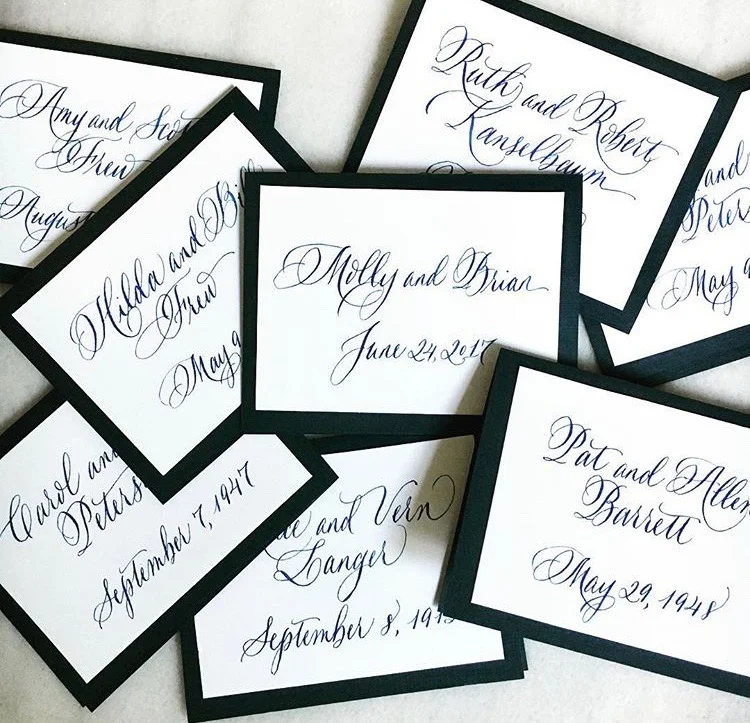 Amy and
Frew
August
Ruth and Robert
Kanselbaum
and
Peter
May 9
Hilda and Bill
Frew
May 9
Molly and Brian
June 24, 2017
Carol and
Peters
September 7, 1947
and Vern
Langer
September 8,
Pat and Allen
Barrett
May 29, 1948